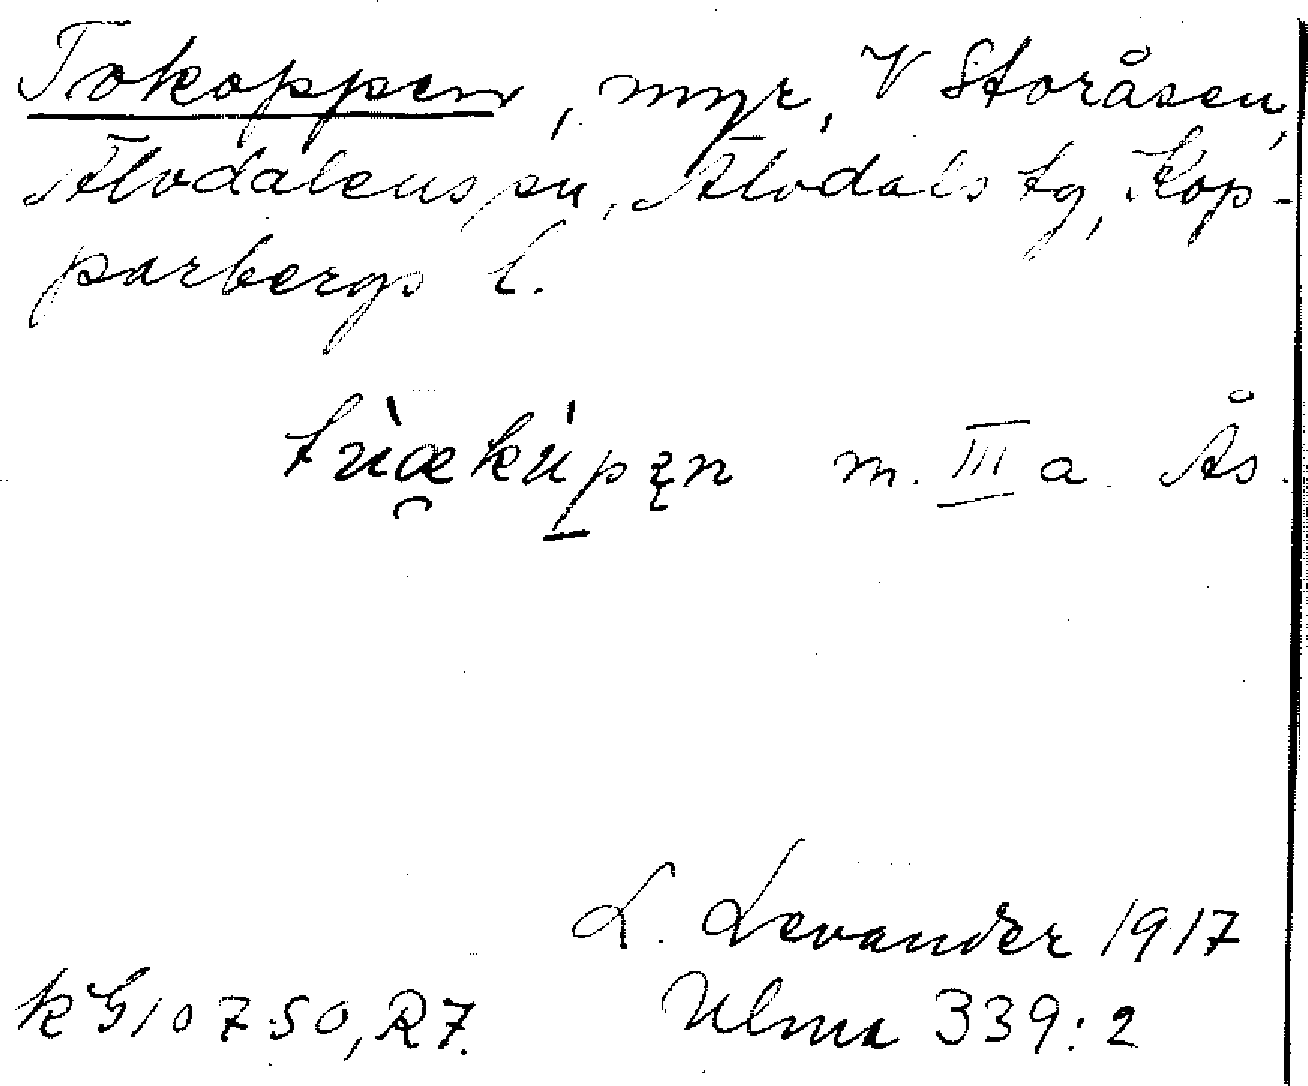 Tokoppen, myr, V Storåsen,
Älvdalens sn, Älvdals tg, Kop-
parbergs l.
m. III a. Ås.
L. Levander 1917
Ulma 339:2